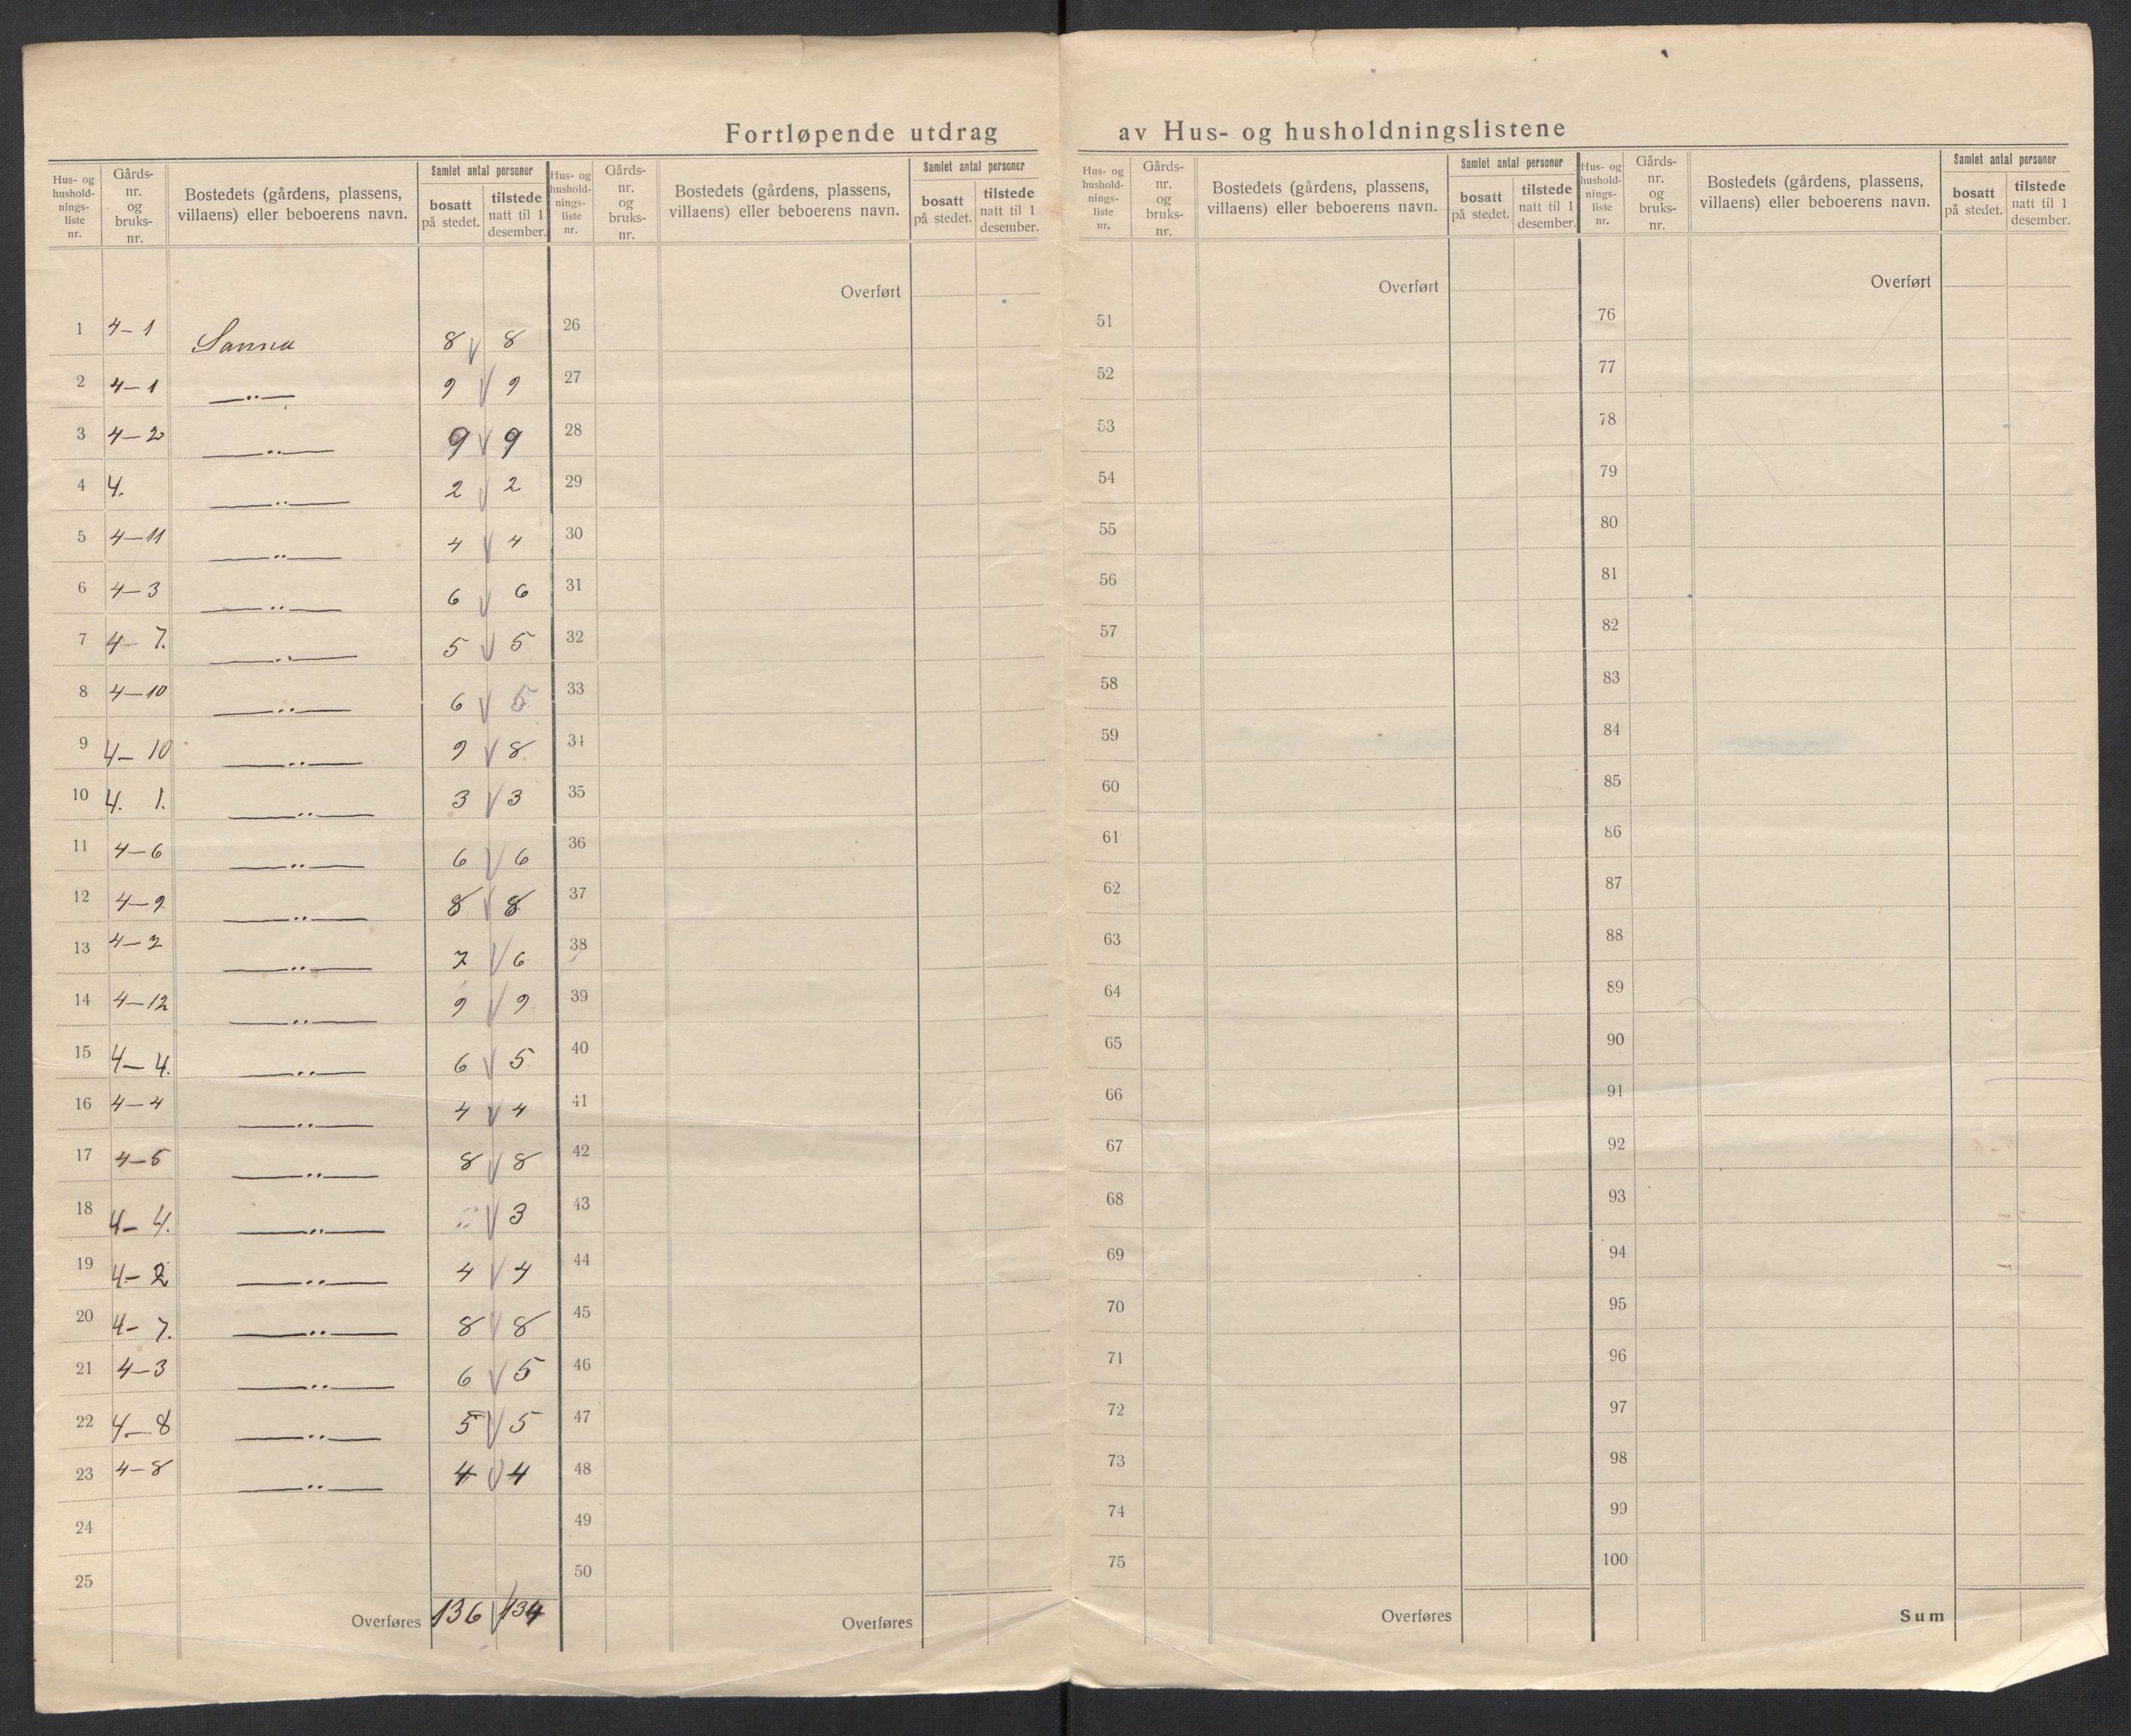 Fortløpende utdrag av Hus- og husholdningslistene
Hus- og hushold- nings- liste nr. Gårds- nr. og bruks- nr. Bostedets (gårdens, plassens, villaens) eller beboerens navn. Samlet antal personer bosatt på stedet. tilstede natt til 1 desember.
Hus- og hushold- nings- liste nr. Gårds- nr. og bruks- nr. Bostedets (gårdens, plassens, villaens) eller beboerens navn. Samlet antal personer bosatt på stedet. tilstede natt til 1 desember.
Hus- og hushold- nings- liste nr. Gårds- nr. og bruks- nr. Bostedets (gårdens, plassens, villaens) eller beboerens navn. Samlet antal personer bosatt på stedet. tilstede natt til 1 desember.
Hus- og hushold- nings- liste nr. Gårds- nr. og bruks- nr. Bostedets (gårdens, plassens, villaens) eller beboerens navn. Samlet antal personer bosatt på stedet. tilstede natt til 1 desember.
Overført Overført Overført
1 4-1 Sanna 8 8 26 51 76
2 4-1 —"— 9 9 27 52 77
3 4-2 —"— 9 9 28 53 78
4 4. —"— 2 2 29 54 79
5 4-11 —"— 4 4 30 55 80
6 4-3 —"— 6 6 31 56 81
7 4-7. —"— 5 5 32 57 82
8 4-10 —"— 6 5 33 58 83
9 4-10 —"— 9 8 34 59 84
10 4. 1. —"— 3 3 35 60 85
11 4-6 —"— 6 6 36 61 86
12 4-9 —"— 8 8 37 62 87
13 4-2 —"— 7 6 38 63 88
14 4-12 —"— 9 9 39 64 89
15 4-4. —"— 6 5 40 65 90
16 4-4 —"— 4 4 41 66 91
17 4-5 —"— 8 8 42 67 92
18 4-4. —"— 3 43 68 93
19 4-2 —"— 4 4 44 69 94
20 4-7. —"— 8 8 45 70 95
21 4-3 —"— 6 5 46 71 96
22 4-8 —"— 5 5 47 72 97
23 4-8 —"— 4 4 48 73 98
24 49 74 99
25 50 75 100
Overføres 136 134 Overføres Overføres Sum